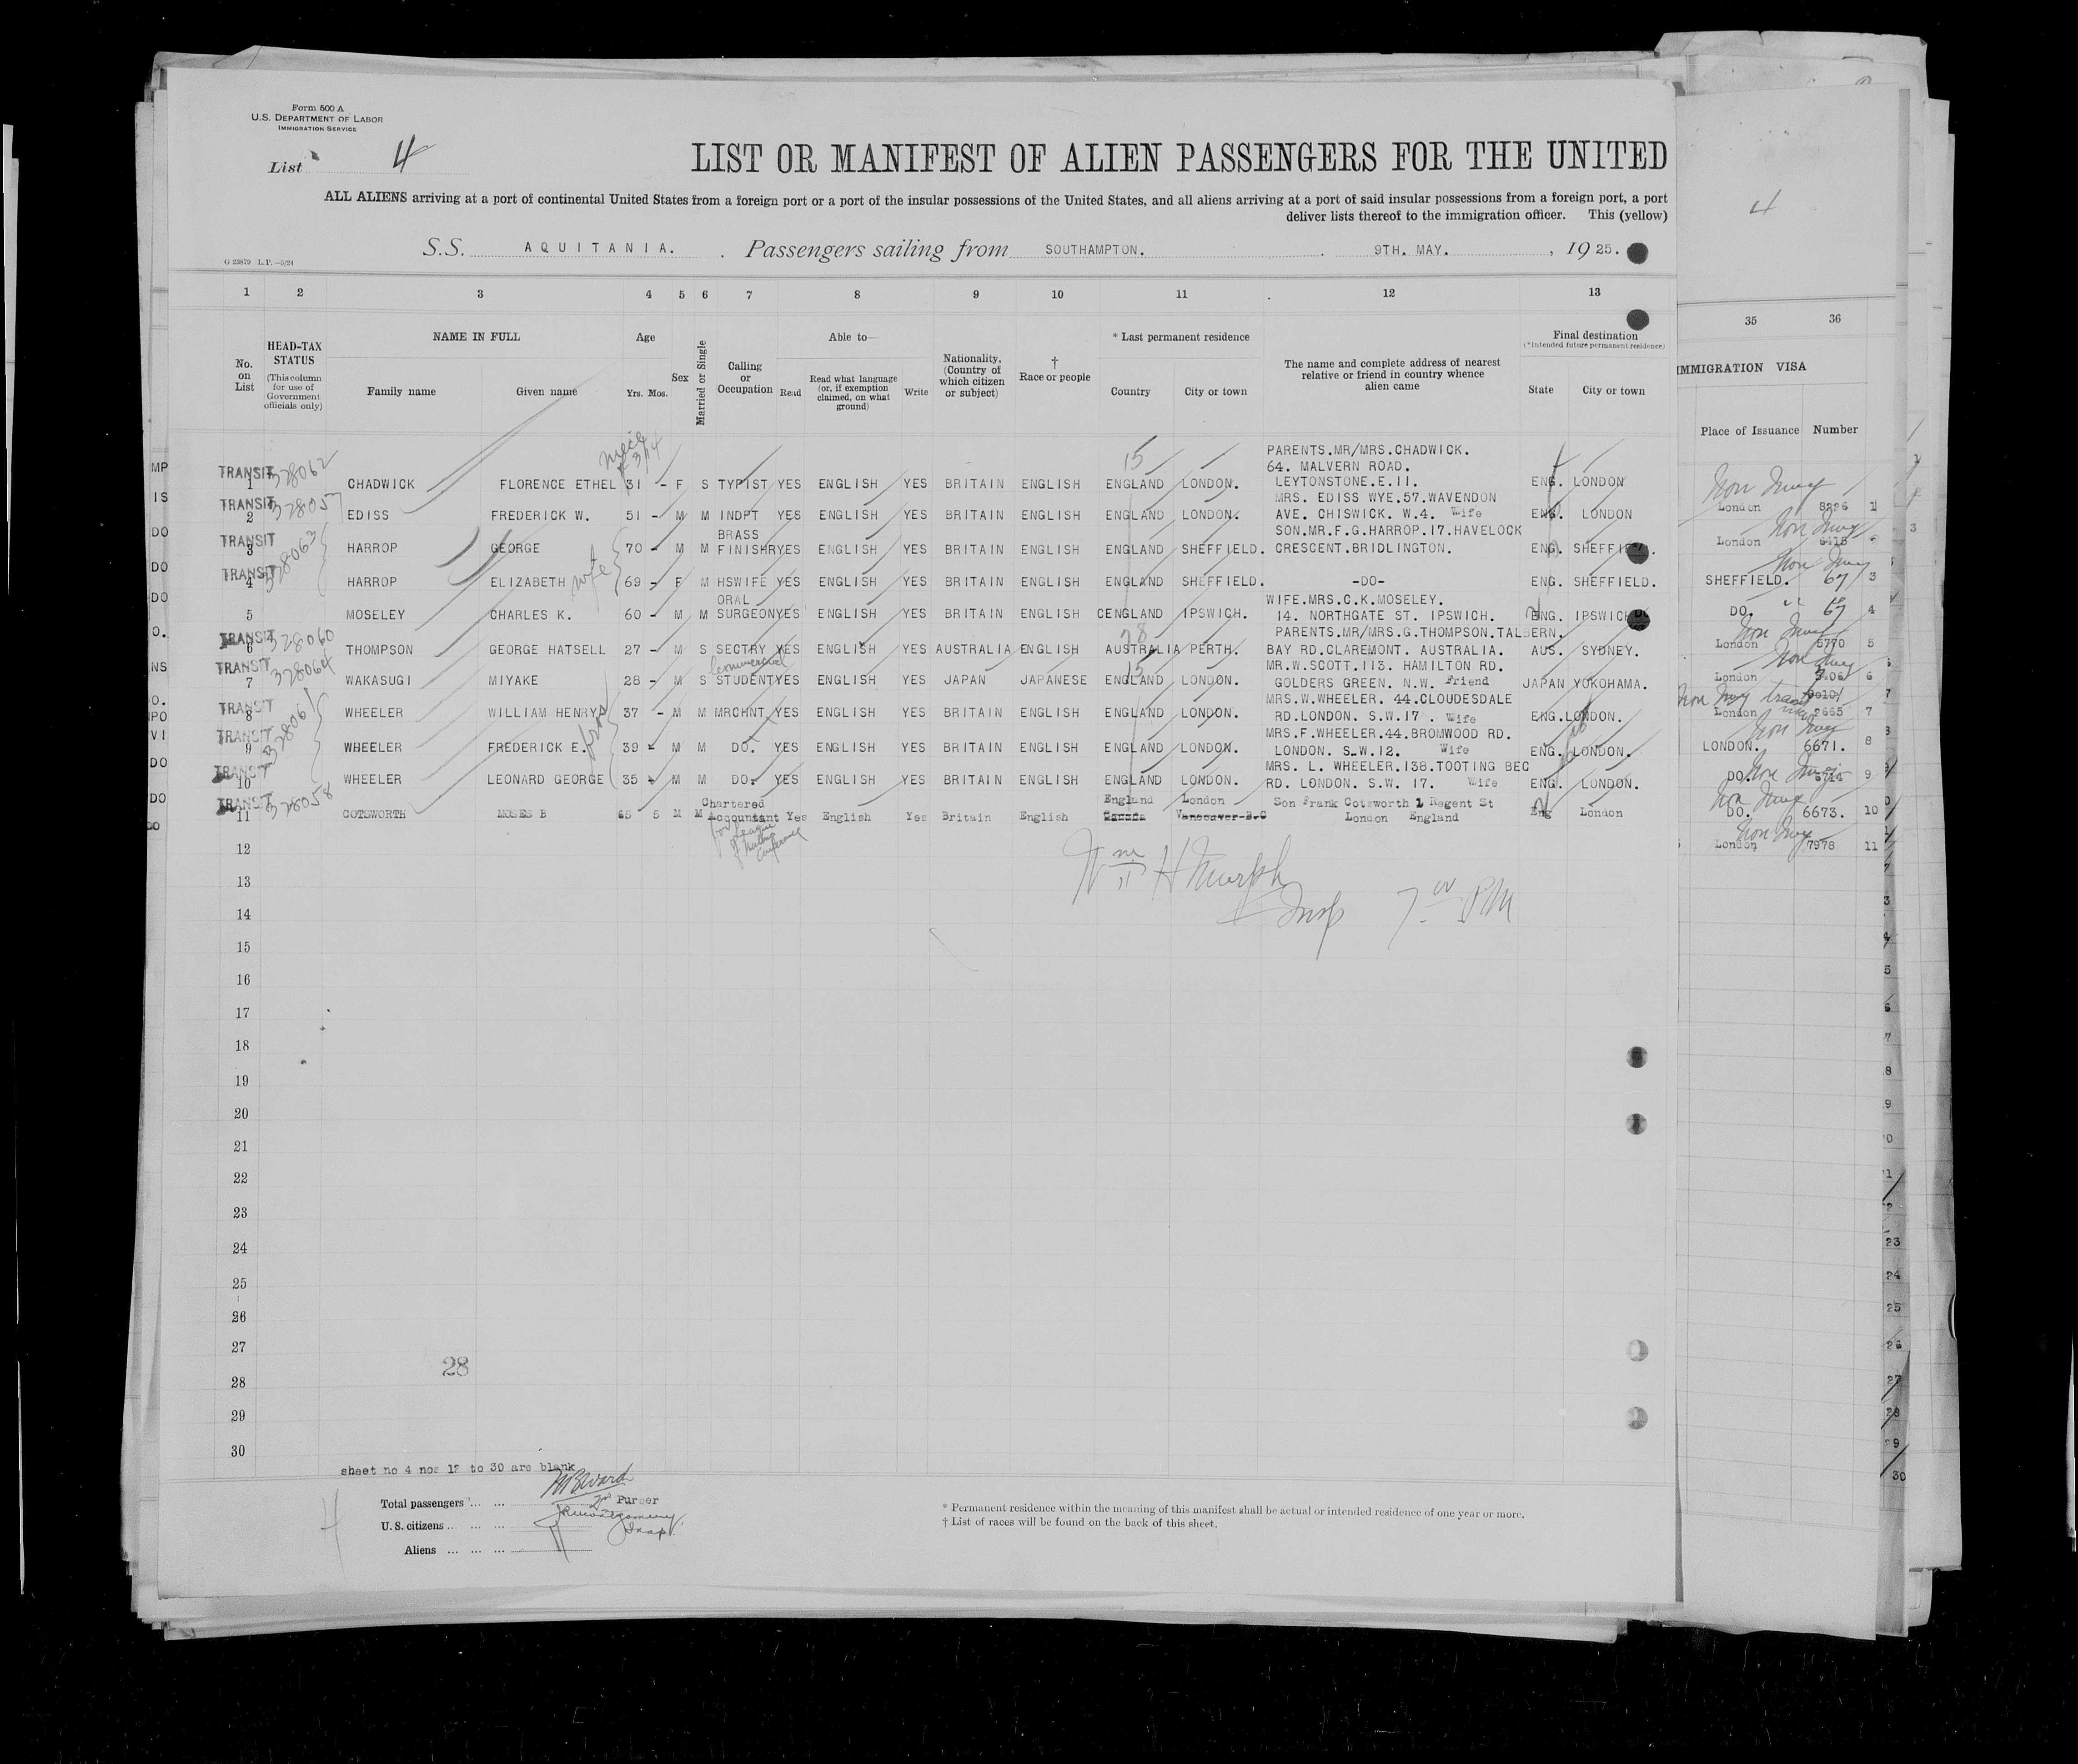 Form 500 A
U.S. DEPARTMENT OF LABOR
IMMIGRATION SERVICE
List 4
LIST OR MANIFEST OF ALIEN PASSENGERS FOR THE UNITED
ALL ALIENS arriving at a port of continental United States from a foreign port or a port of the insular possessions of the United States, and all aliens arriving at a port of said insular possessions from a foreign port, a port
deliver lists thereof to the immigration officer. This (yellow)
S.S. AQUITANIA. Passengers sailing from SOUTHAMPTON. 9TH. MAY. , 1925.
4
1 2 3 4 5 6 7 8 9 10 11 12 13
35 36
No. on List
HEAD-TAX STATUS
(This column for use of Government officials only)
NAME IN FULL
Family name Given name
Age
Yrs. Mos.
Sex
Married or Single
Calling or Occupation
Able to—
Read
Read what language (or, if exemption claimed, on what ground)
Write
Nationality, (Country of which citizen or subject)
† Race or people
* Last permanent residence
Country City or town
The name and complete address of nearest relative or friend in country whence alien came
Final destination
(*Intended future permanent residence)
State City or town
IMMIGRATION VISA
Place of Issuance Number
PARENTS.MR/MRS.CHADWICK.
64. MALVERN ROAD.
TRANSIT 328062
1 CHADWICK FLORENCE ETHEL 31 - F S TYPIST YES ENGLISH YES BRITAIN ENGLISH ENGLAND LONDON. LEYTONSTONE.E.11. ENG. LONDON
MRS. EDISS WYE.57.WAVENDON
TRANSIT 328057
2 EDISS FREDERICK W. 51 - M M INDPT YES ENGLISH YES BRITAIN ENGLISH ENGLAND LONDON. AVE. CHISWICK. W.4. Wife ENG. LONDON
SON.MR.F.G.HARROP.17.HAVELOCK
TRANSIT 328063
3 HARROP GEORGE 70 - M M BRASS FINISHR YES ENGLISH YES BRITAIN ENGLISH ENGLAND SHEFFIELD. CRESCENT.BRIDLINGTON. ENG.
TRANSIT
4 HARROP ELIZABETH wife 69 - F M HSWIFE YES ENGLISH YES BRITAIN ENGLISH ENGLAND SHEFFIELD. -DO- ENG. SHEFFIELD.
WIFE.MRS.C.K.MOSELEY.
5 MOSELEY CHARLES K. 60 - M M ORAL SURGEON YES ENGLISH YES BRITAIN ENGLISH ENGLAND IPSWICH. 14. NORTHGATE ST. IPSWICH. ENG.
PARENTS.MR/MRS.G.THOMPSON.TALBERN.
TRANSIT 328060
6 THOMPSON GEORGE HATSELL 27 - M S SECTRY YES ENGLISH YES AUSTRALIA ENGLISH AUSTRALIA PERTH. BAY RD.CLAREMONT. AUSTRALIA. AUS. SYDNEY.
MR.W.SCOTT.113. HAMILTON RD.
TRANSIT 328064
7 WAKASUGI MIYAKE 28 - M S Commercial STUDENT YES ENGLISH YES JAPAN JAPANESE ENGLAND LONDON. GOLDERS GREEN. N.W. Friend JAPAN YOKOHAMA.
MRS.W.WHEELER. 44.CLOUDESDALE
TRANSIT 328061
8 WHEELER WILLIAM HENRY 37 - M M MRCHNT YES ENGLISH YES BRITAIN ENGLISH ENGLAND LONDON. RD.LONDON. S.W.17. Wife ENG. LONDON.
MRS.F.WHEELER.44.BROMWOOD RD.
TRANSIT
9 WHEELER FREDERICK E. 39 - M M DO. YES ENGLISH YES BRITAIN ENGLISH ENGLAND LONDON. LONDON. S.W.12. Wife ENG. LONDON.
MRS. L. WHEELER.138.TOOTING BEC
TRANSIT
10 WHEELER LEONARD GEORGE 35 - M M DO. YES ENGLISH YES BRITAIN ENGLISH ENGLAND LONDON. RD. LONDON. S.W. 17. Wife ENG. LONDON.
TRANSIT 328058
11 COTSWORTH MOSES B 65 5 M M Chartered Accountant Yes English Yes Britain English England London Canada Vancouver-B.C Son Frank Cotsworth 1 Regent St London England Eng London
for League of Nations Conference
London 1
London
SHEFFIELD. 67 3
DO. 67 4
London 5770 5
London 6
London 7
LONDON. 6671. 8
DO. 9
DO. 6673. 10
London 7978 11
Wm H Murphy
Insp 7 00 PM
12
13
14
15
16
17
18
19
20
21
22
23
24
25
26
27
28
28
29
30
sheet no 4 nos 12 to 30 are blank
Total passengers
2nd Purser
U.S. citizens
Insp.
Aliens
* Permanent residence within the meaning of this manifest shall be actual or intended residence of one year or more.
† List of races will be found on the back of this sheet.